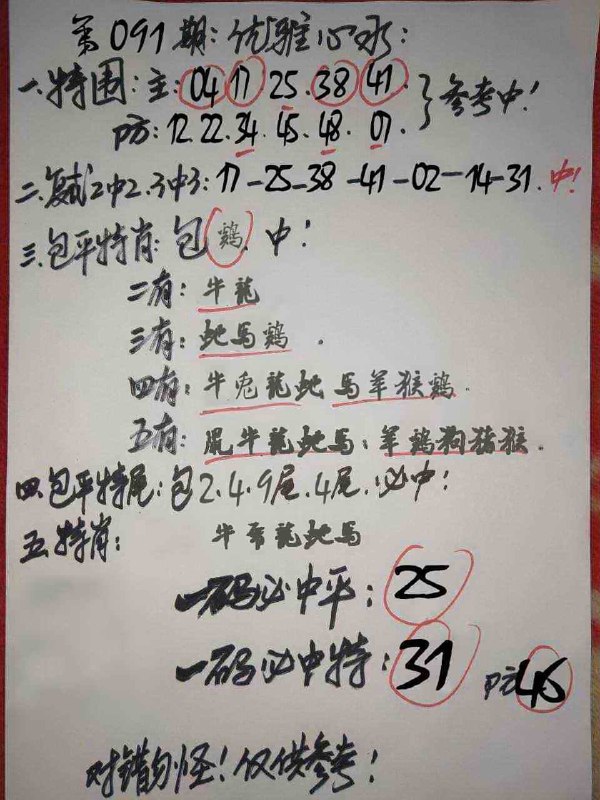 第091期:优雅心水:
一.特围:主:04 17 25.38 41.
防:12.22.34.45.48.07. }参考中!
二.复试2中2.3中3:17-25-38-41-02-14-31.中!
三.包平特肖:包鷄.中!
二有:牛龍
三有:蛇馬鷄.
四有:牛兎龍蛇馬羊猴鷄.
五有:鼠牛龍蛇馬;羊鷄狗猪猴.
四.包平特尾:包2.4.9尾.4尾.必中!
五.特肖:牛兎龍蛇馬
一码必中平:25
一码必中特:31 防46
对错勿怪!仅供参考!